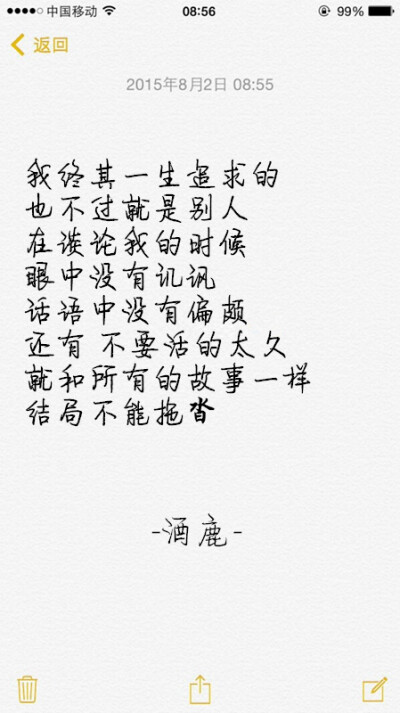 中国移动 08:56 99%
返回
2015年8月2日 08:55
我终其一生追求的
也不过就是别人
在谈论我的时候
眼中没有讥讽
话语中没有偏颇
还有 不要活的太久
就和所有的故事一样
结局不能拖沓
-酒鹿-